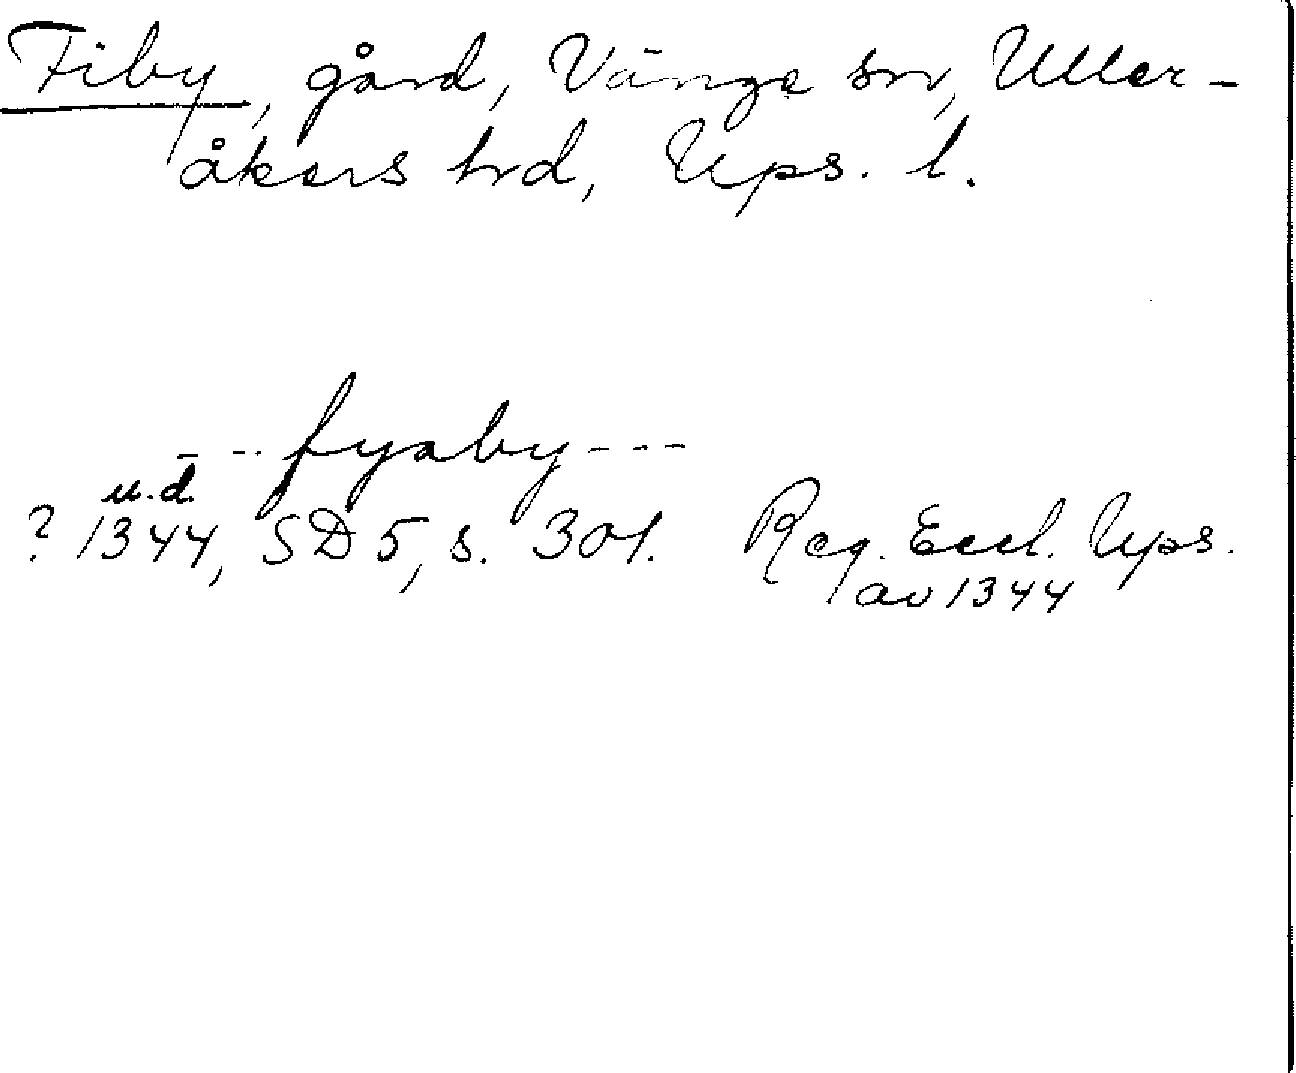 Fiby, gård, Vänge sn, Uller-
åkers hrd, Ups. l.
--- fyæby ---
u.d.
? 1344, SD 5, s. 301. Reg. Eccl. Ups.
av 1344